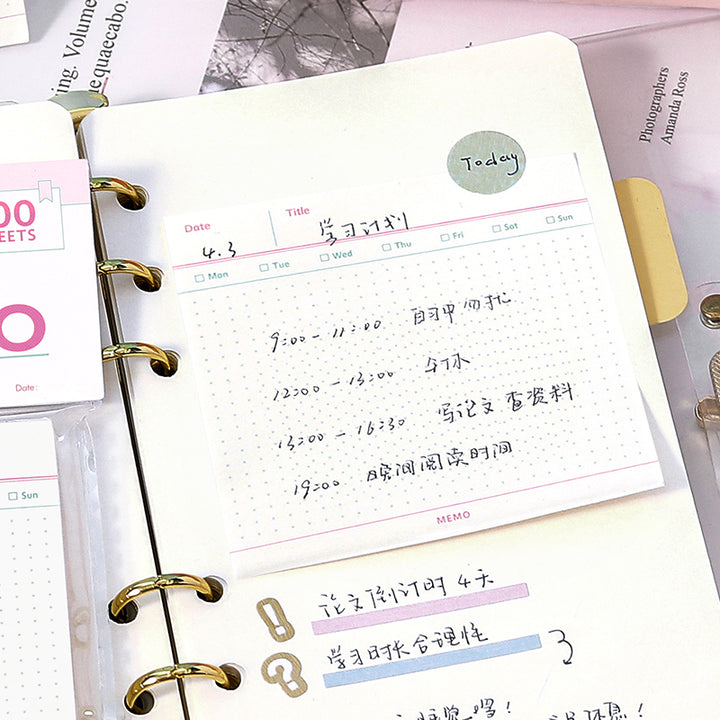 ing. Volume
nequaecabo.
Photographers
Amanda Ross
00
EETS
O
Date:
Sun
Today
Date Title
4.3 学习计划
Mon Tue Wed Thu Fri Sat Sun
9:00-11:00 自习中勿扰
12:00-13:00 午休
13:00-16:30 写论文 查资料
19:00 晚间阅读时间
MEMO
论文倒计时4天
学习时长合理性